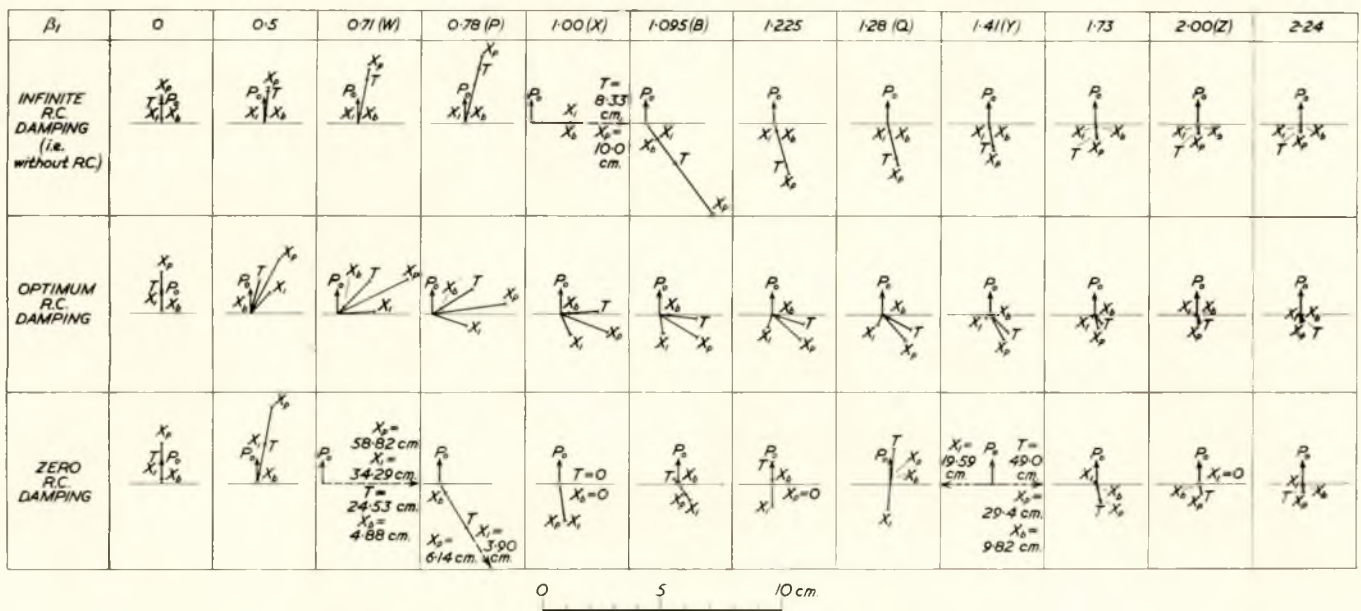 β₁ 0 0·5 0·71 (W) 0·78 (P) 1·00 (X) 1·095 (B) 1·225 1·28 (Q) 1·41 (Y) 1·73 2·00 (Z) 2·24
INFINITE
R.C.
DAMPING
(i.e.
without R.C.)
Xₚ
T P₀
X₁ X_b
Xₚ
P₀ T
X₁ X_b
Xₚ
T
P₀
X₁ X_b
Xₚ
T
P₀
X₁ X_b
P₀ T=
X₁ 8·33
cm.
X_b Xₚ=
10·0
cm.
P₀
X₁
X_b
T
Xₚ
P₀
X₁ X_b
T
Xₚ
P₀
X₁ X_b
T
Xₚ
P₀
X₁ X_b
T
Xₚ
P₀
X₁ X_b
T Xₚ
P₀
X₁ X_b
T Xₚ
P₀
X₁ X_b
T Xₚ
OPTIMUM
R.C.
DAMPING
Xₚ
T P₀
X₁ X_b
Xₚ
P₀ T
X_b X₁
P₀ X_b T Xₚ
X₁
P₀ X_b T
Xₚ
X₁
P₀
X_b T
X₁ Xₚ
P₀
X_b
T
X₁ Xₚ
P₀
X_b
T
X₁ Xₚ
P₀
X_b
X₁ T
Xₚ
P₀
X₁ X_b
T
Xₚ
P₀
X₁ X_b
T
Xₚ
P₀
X₁ X_b
T
Xₚ
P₀
X₁ X_b
Xₚ T
ZERO
R.C.
DAMPING
Xₚ
T P₀
X₁ X_b
Xₚ
X₁ T
P₀ X_b
P₀ Xₚ=
58·82 cm.
X₁=
34·29 cm.
T=
24·53 cm.
X_b=
4·88 cm.
P₀
X_b
T
X₁=
3·90
cm.
Xₚ=
6·14 cm.
P₀
T=0
X_b=0
Xₚ X₁
P₀
T X_b
Xₚ X₁
P₀
T X_b
Xₚ=0
X₁
T
P₀ Xₚ
X_b
X₁
X₁=
19·59
cm.
P₀
T=
49·0
cm.
Xₚ=
29·4 cm.
X_b=
9·82 cm.
P₀
X₁
X_b
T Xₚ
P₀
X₁=0
X_b T
Xₚ
P₀
X₁ X_b
T Xₚ
0 5 10 cm.